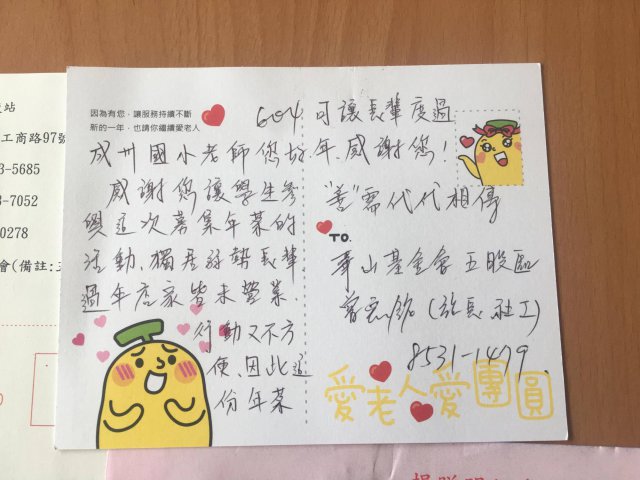 站
工商路97號
3-5685
3-7052
0278
會(備註:五
因為有您,讓服務持續不斷
新的一年,也請你繼續愛老人
604
成州國小老師您好
感謝您讓學生參
與這次募集年菜的
活動、獨居弱勢長輩
過年店家皆未營業、
行動又不方
便、因此這
份年菜
可讓長輩度過
年、感謝您!
"善"需代代相傳
TO.
華山基金會 五股區
(站長 社工)
8531-1479
愛老人愛團圓